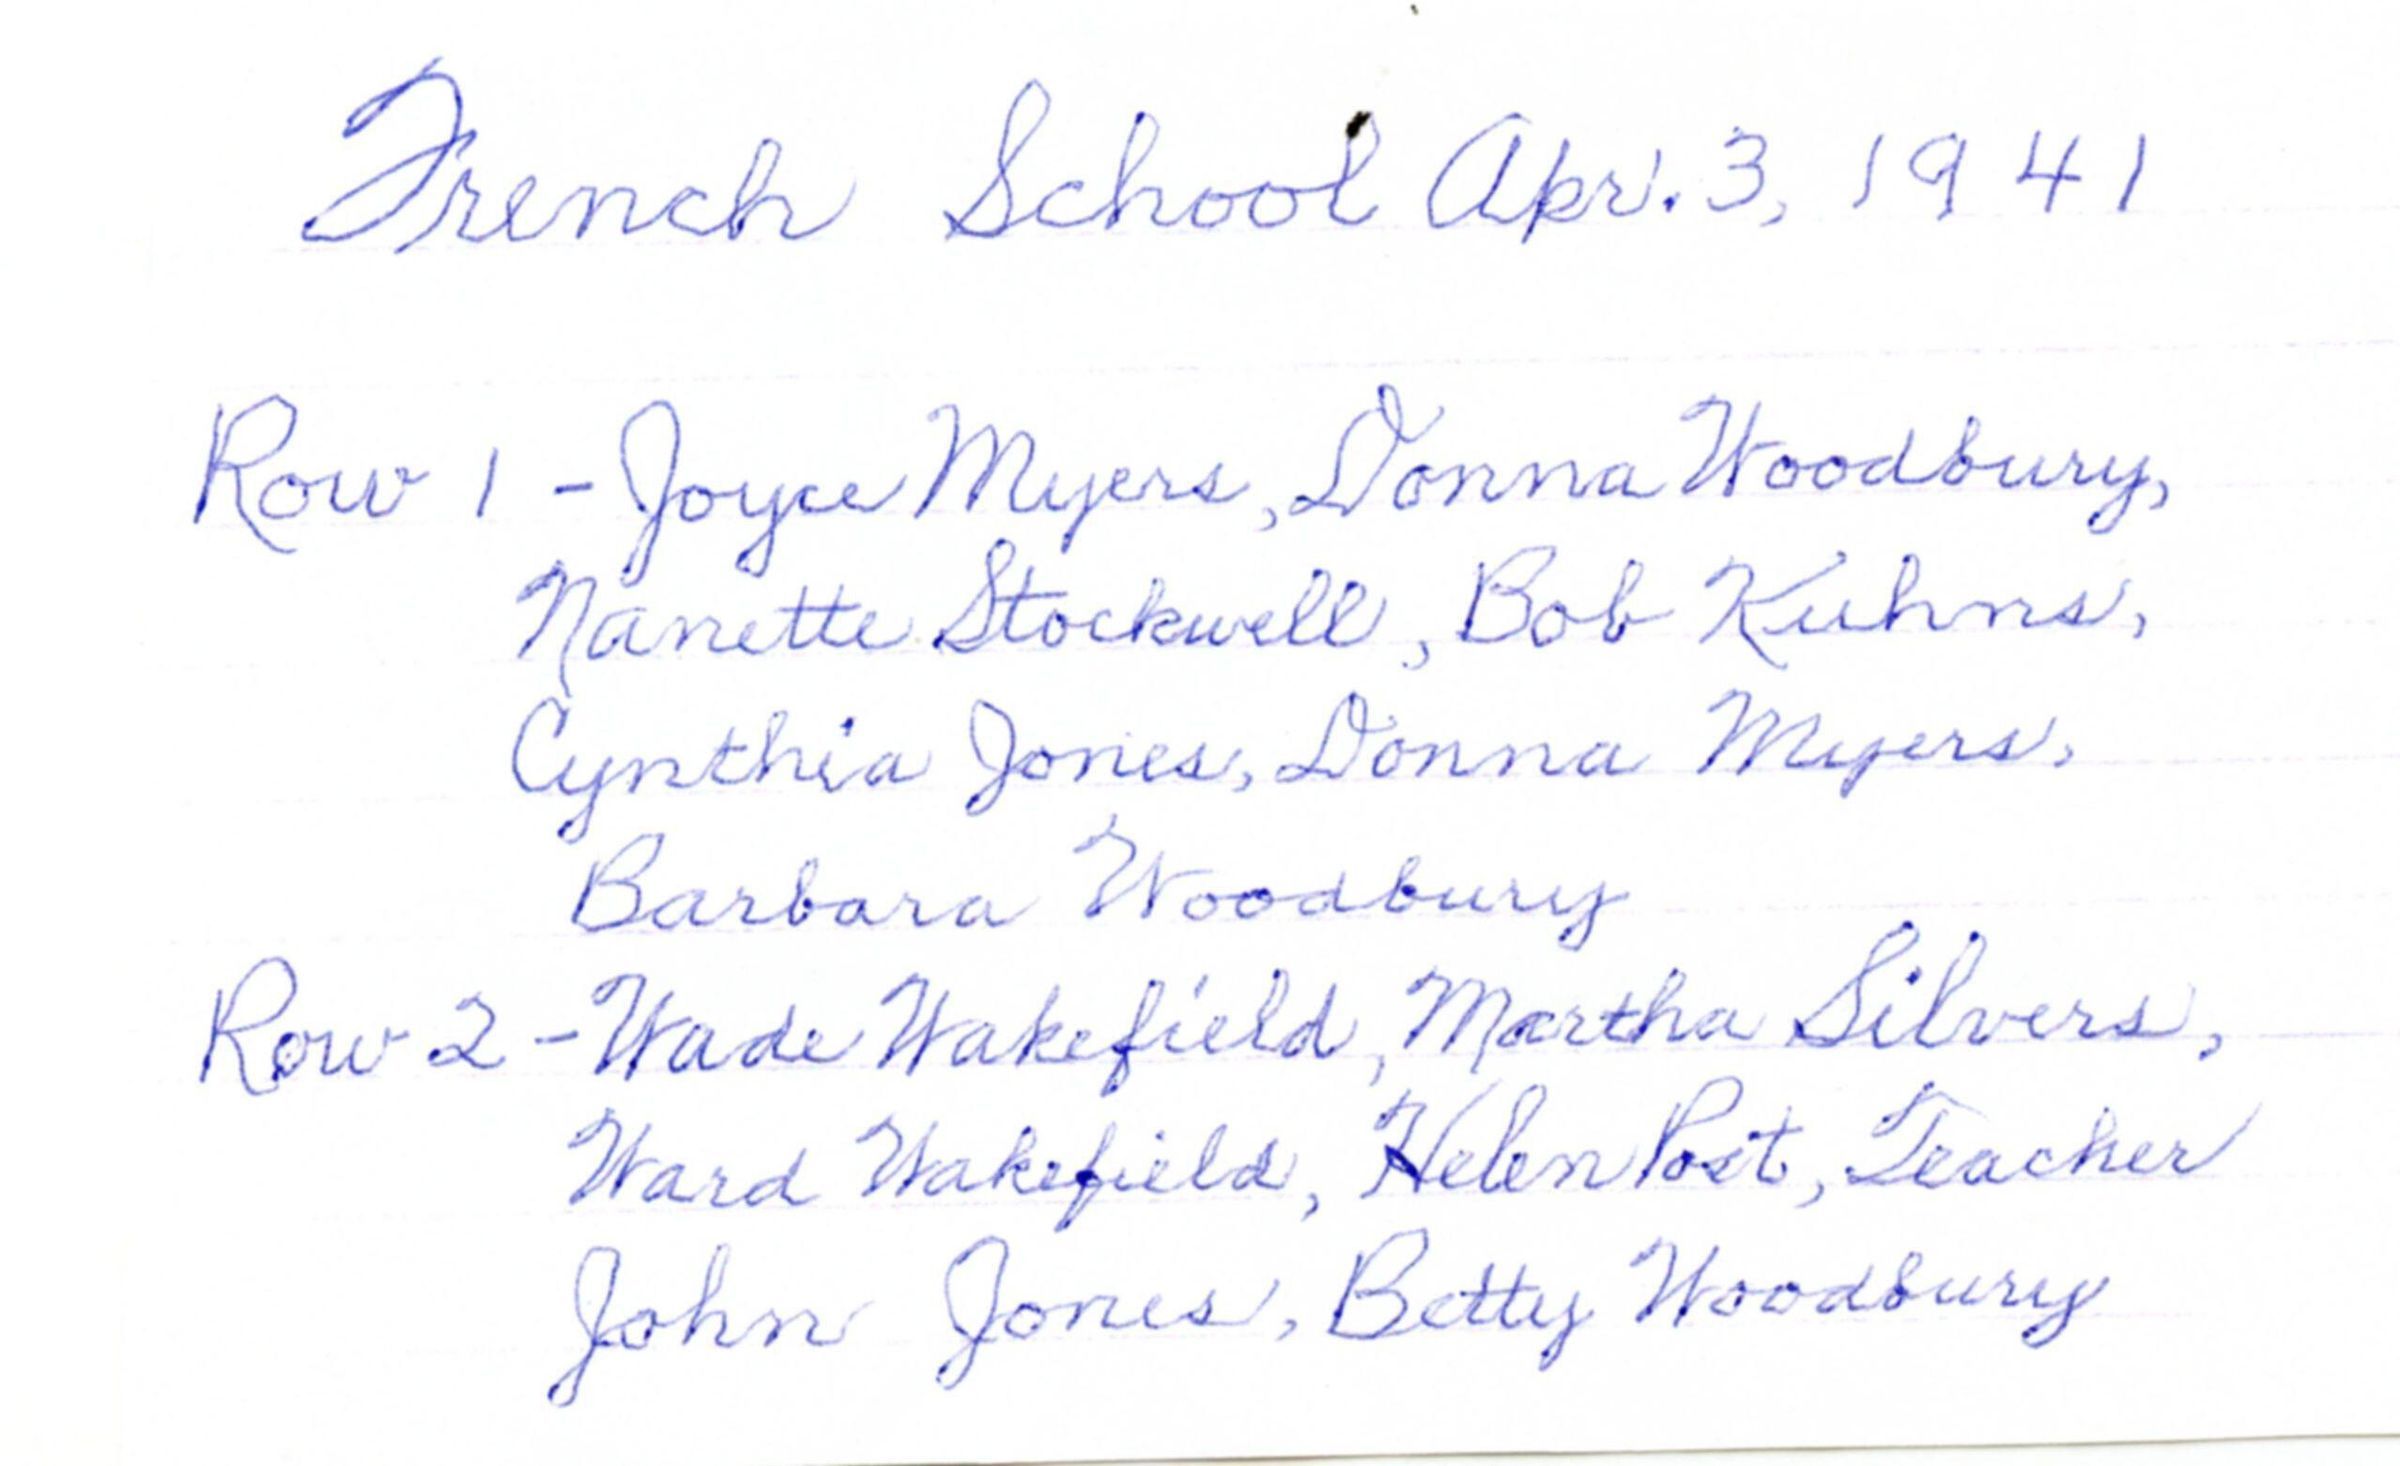 French School Apr. 3, 1941
Row 1 - Joyce Myers, Donna Woodbury,
Nanette Stockwell, Bob Kuhns,
Cynthia Jones, Donna Myers,
Barbara Woodbury
Row 2 - Wade Wakefield, Martha Silvers,
Ward Wakefield, Helen Post, Teacher
John Jones, Betty Woodbury